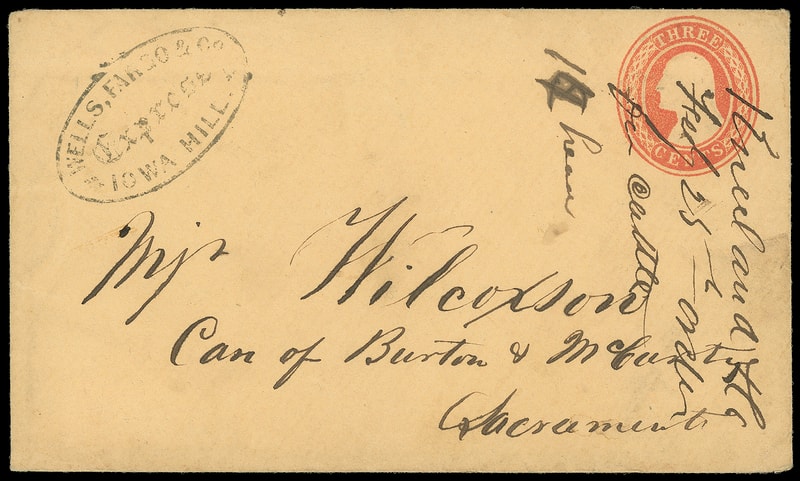 WELLS, FARGO & CO.
Express
IOWA HILL.
THREE
CENTS
Mjr Wilcoxson
Car of Burton & McCarty
Sacramento
Kneeland &Co
Feb 25 order
per Castle
1